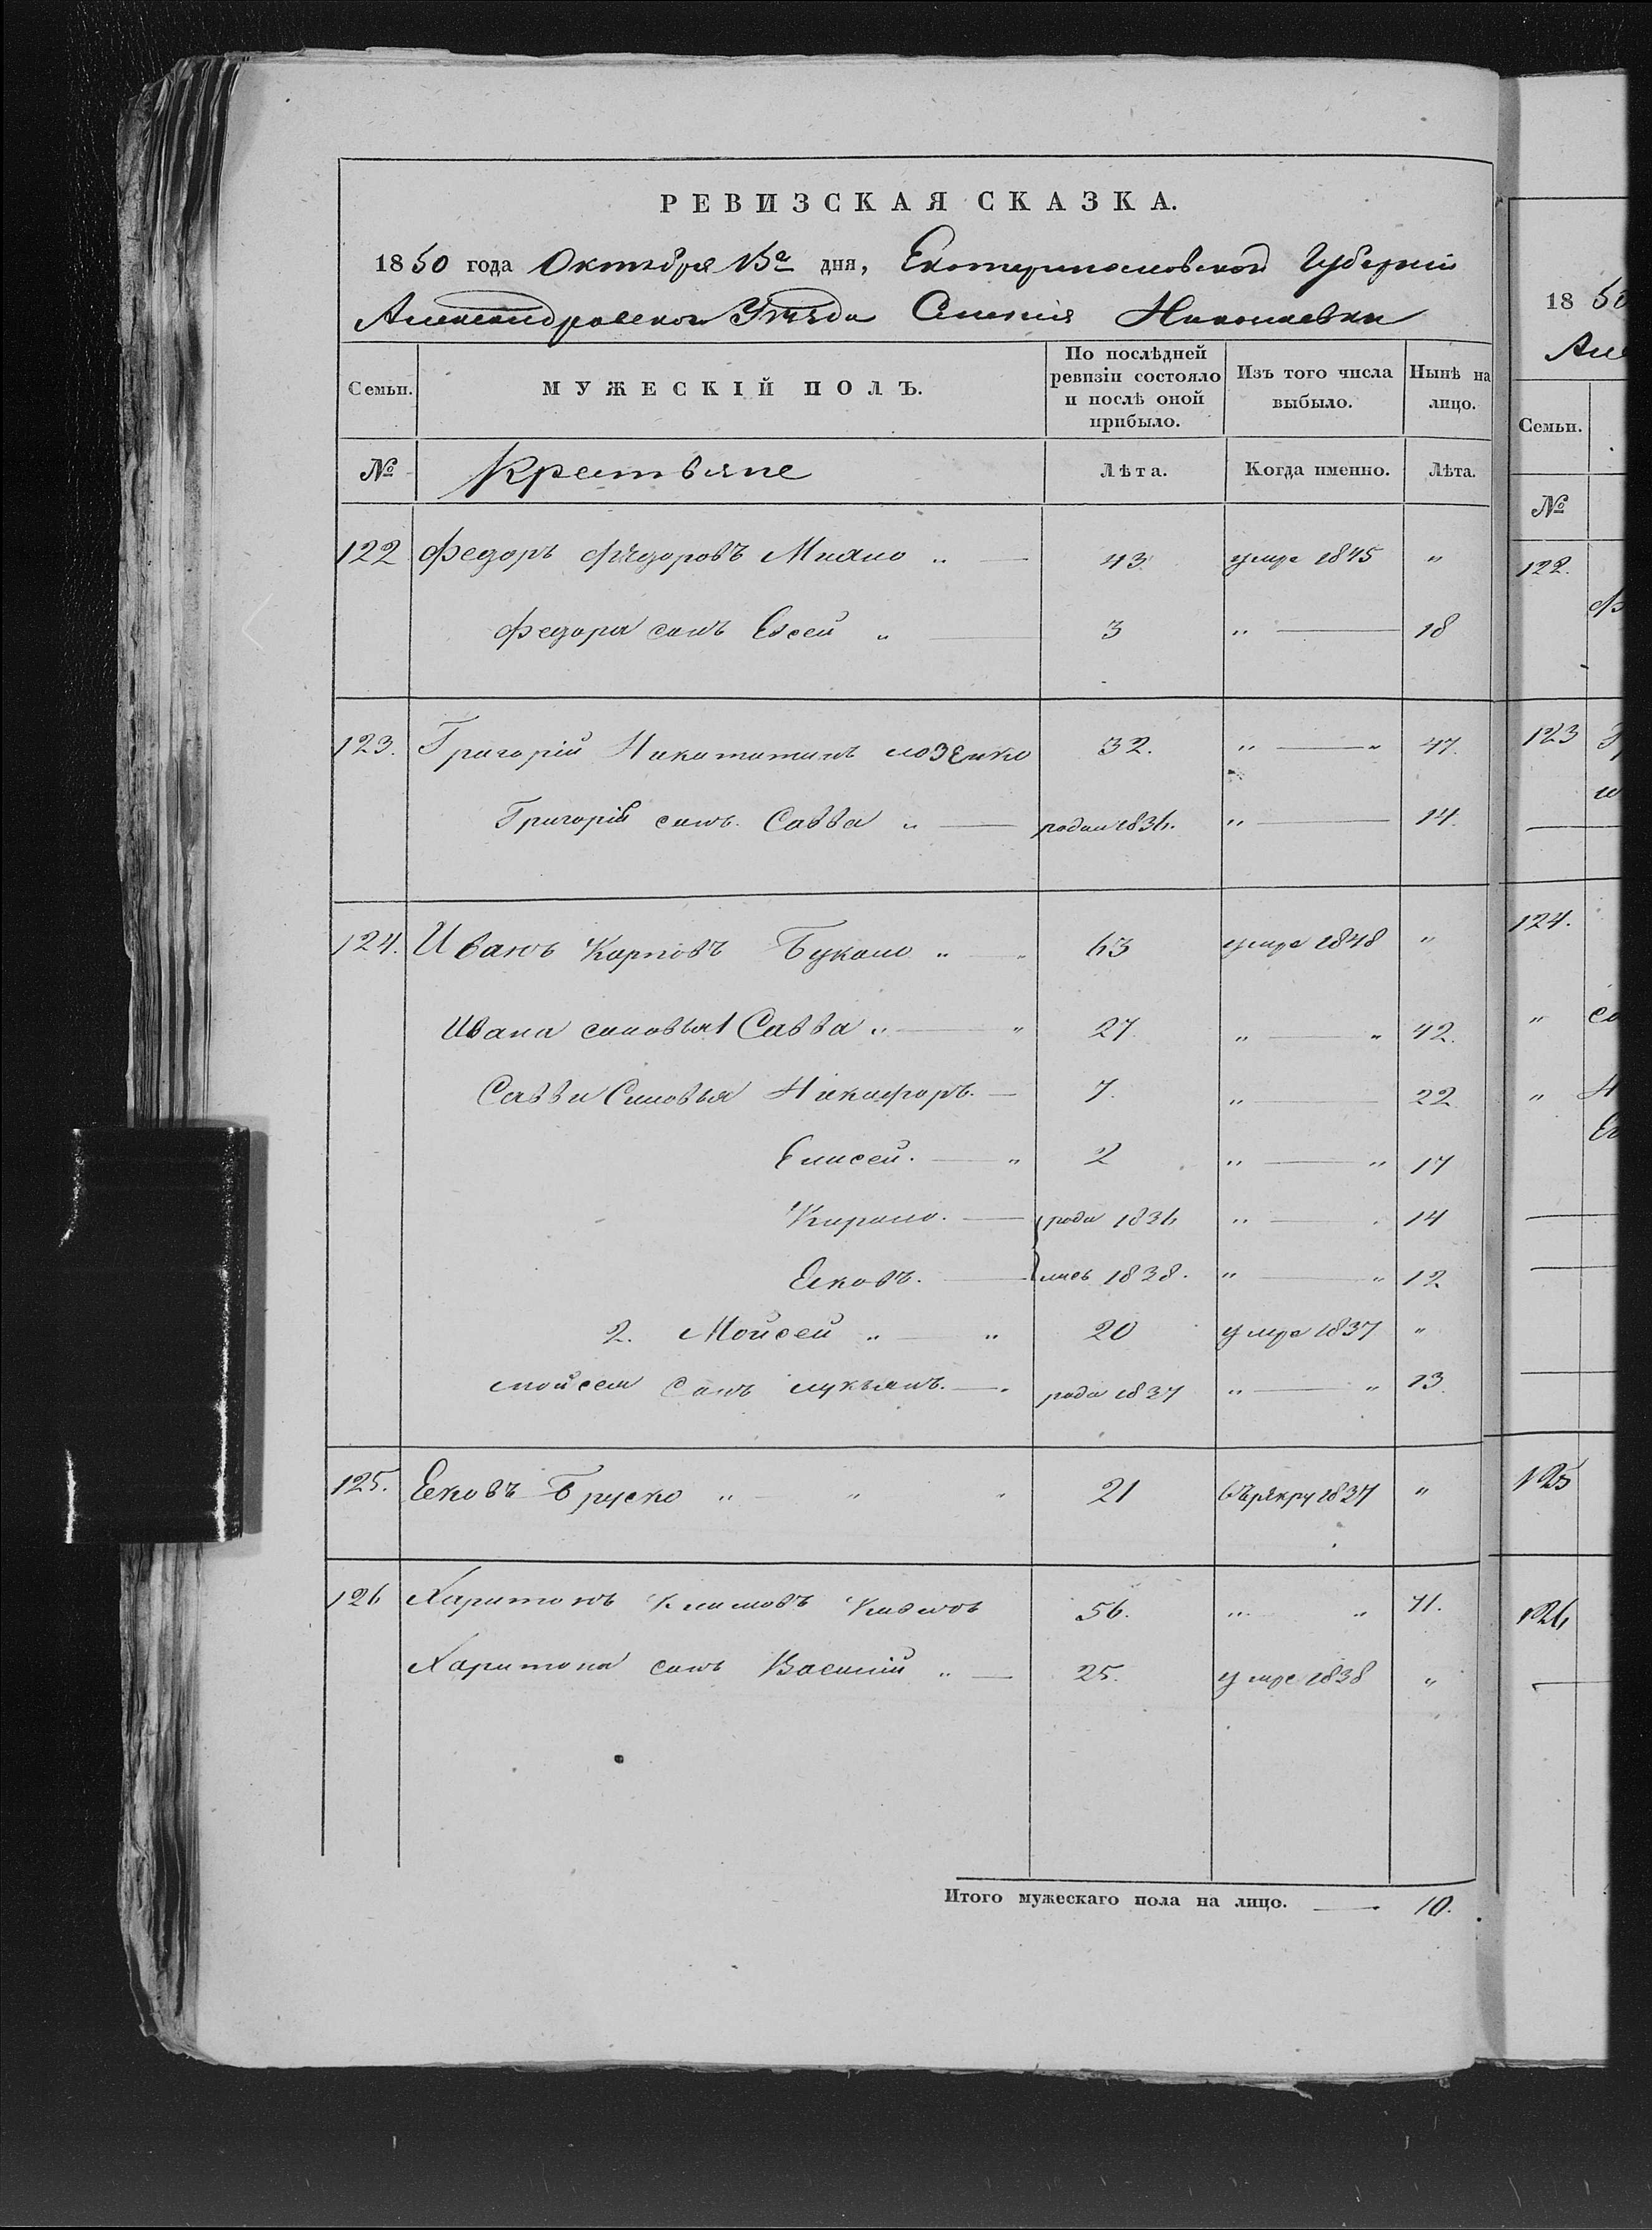 РЕВИЗСКАЯ СКАЗКА.
1850 года Октября 15го дня, Екатеринославской Губерніи
Александровского Уезда Селенія Николаевки
Семьи. МУЖЕСКІЙ ПОЛЪ. По послѣдней ревизіи состояло и послѣ оной прибыло. Изъ того числа выбыло. Нынѣ на лицо.
№ Крестьяне Лѣта. Когда именно. Лѣта.
122 Федоръ Фѣдоровъ „ 43 умре 1845 „
Федора сынъ „ 3 „ 18
123. Григорій 32. „ „ 47.
Григорія сынъ Савва „ родил 1836. „ 14.
124. Иванъ Карповъ „ 63 умре 1848 „
Ивана сыновья 1 Савва „ „ 27. „ „ 42.
Саввы Сыновья Никифоръ. 7. „ 22
Елисей. „ 2 „ „ 17
Кирило. роди 1836 „ 14
Есковъ. лись 1838. „ „ 12
2. Мойсей „ „ 20 умре 1837 „
мойсея сынъ лукьянъ. роди 1837 „ „ 13.
125. Есковъ Бруско „ „ „ 21 въ рекру 1837 „
126 Харитонъ Климовъ 56. „ „ 71.
Харитона сынъ Василій „ 25. умре 1838 „
Итого мужескаго пола на лицо. 10.
18 50
Але
Семьи.
№
122.
123
124.
125
126